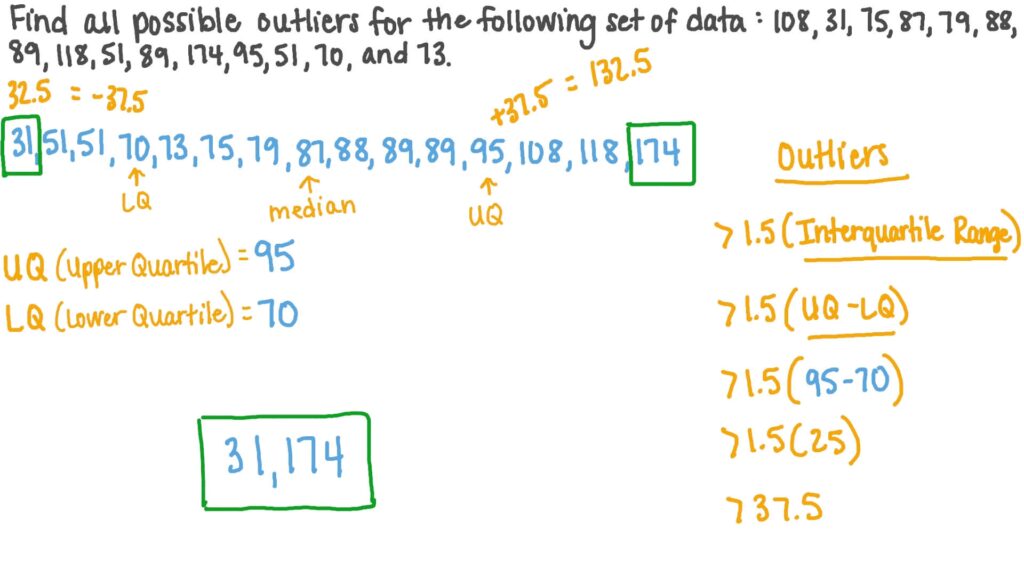 Find all possible outliers for the following set of data : 108, 31, 75, 87, 79, 88,
89, 118, 51, 89, 174, 95, 51, 70, and 73.
32.5 = -37.5
+37.5 = 132.5
31, 51, 51, 70, 73, 75, 79, 87, 88, 89, 89, 95, 108, 118, 174
↑ LQ
↑ median
↑ UQ
UQ (Upper Quartile) = 95
LQ (Lower Quartile) = 70
31, 174
Outliers
> 1.5 (Interquartile Range)
> 1.5 (UQ - LQ)
> 1.5 (95 - 70)
> 1.5 (25)
> 37.5